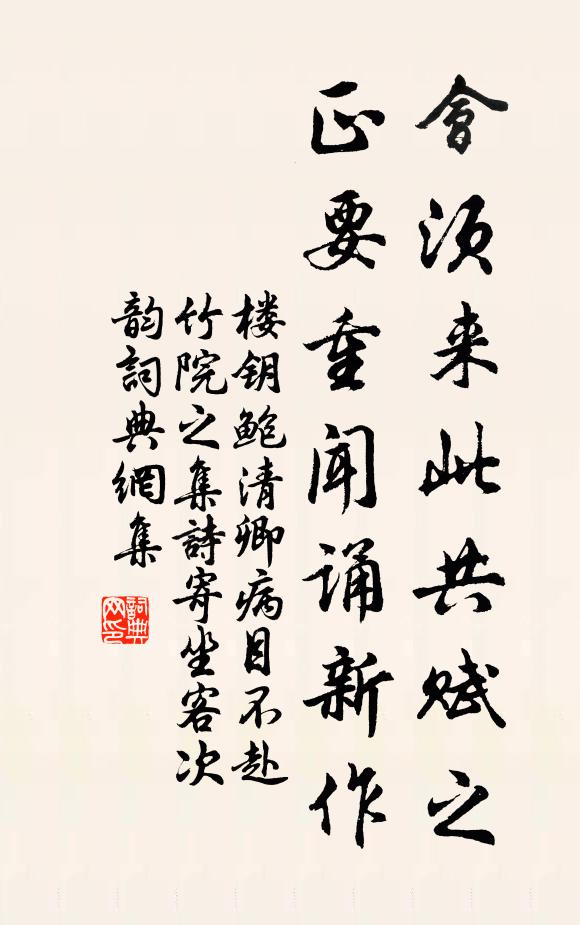 會须来此共赋之
正要重闻诵新作
楼钥鲍清卿病目不赴
竹院之集詩寄坐客次
韵詞典網集
詞典
网印